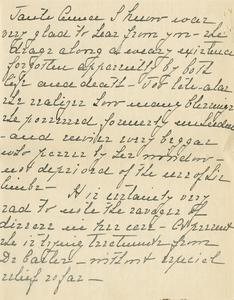 Tante Aimee I know was
very glad to hear from you - she
drags along a weary existence
forgotten apparently by both
life and death - Too late - alas
she realizes how many blessings
she possessed formerly unheeded
- and envies every beggar
who passes by her window -
not deprived of the use of his
limbs - It is certainly very
sad to note the ravages of
disease in her case - At present
she is trying treatments from
Dr - without special
relief so far -